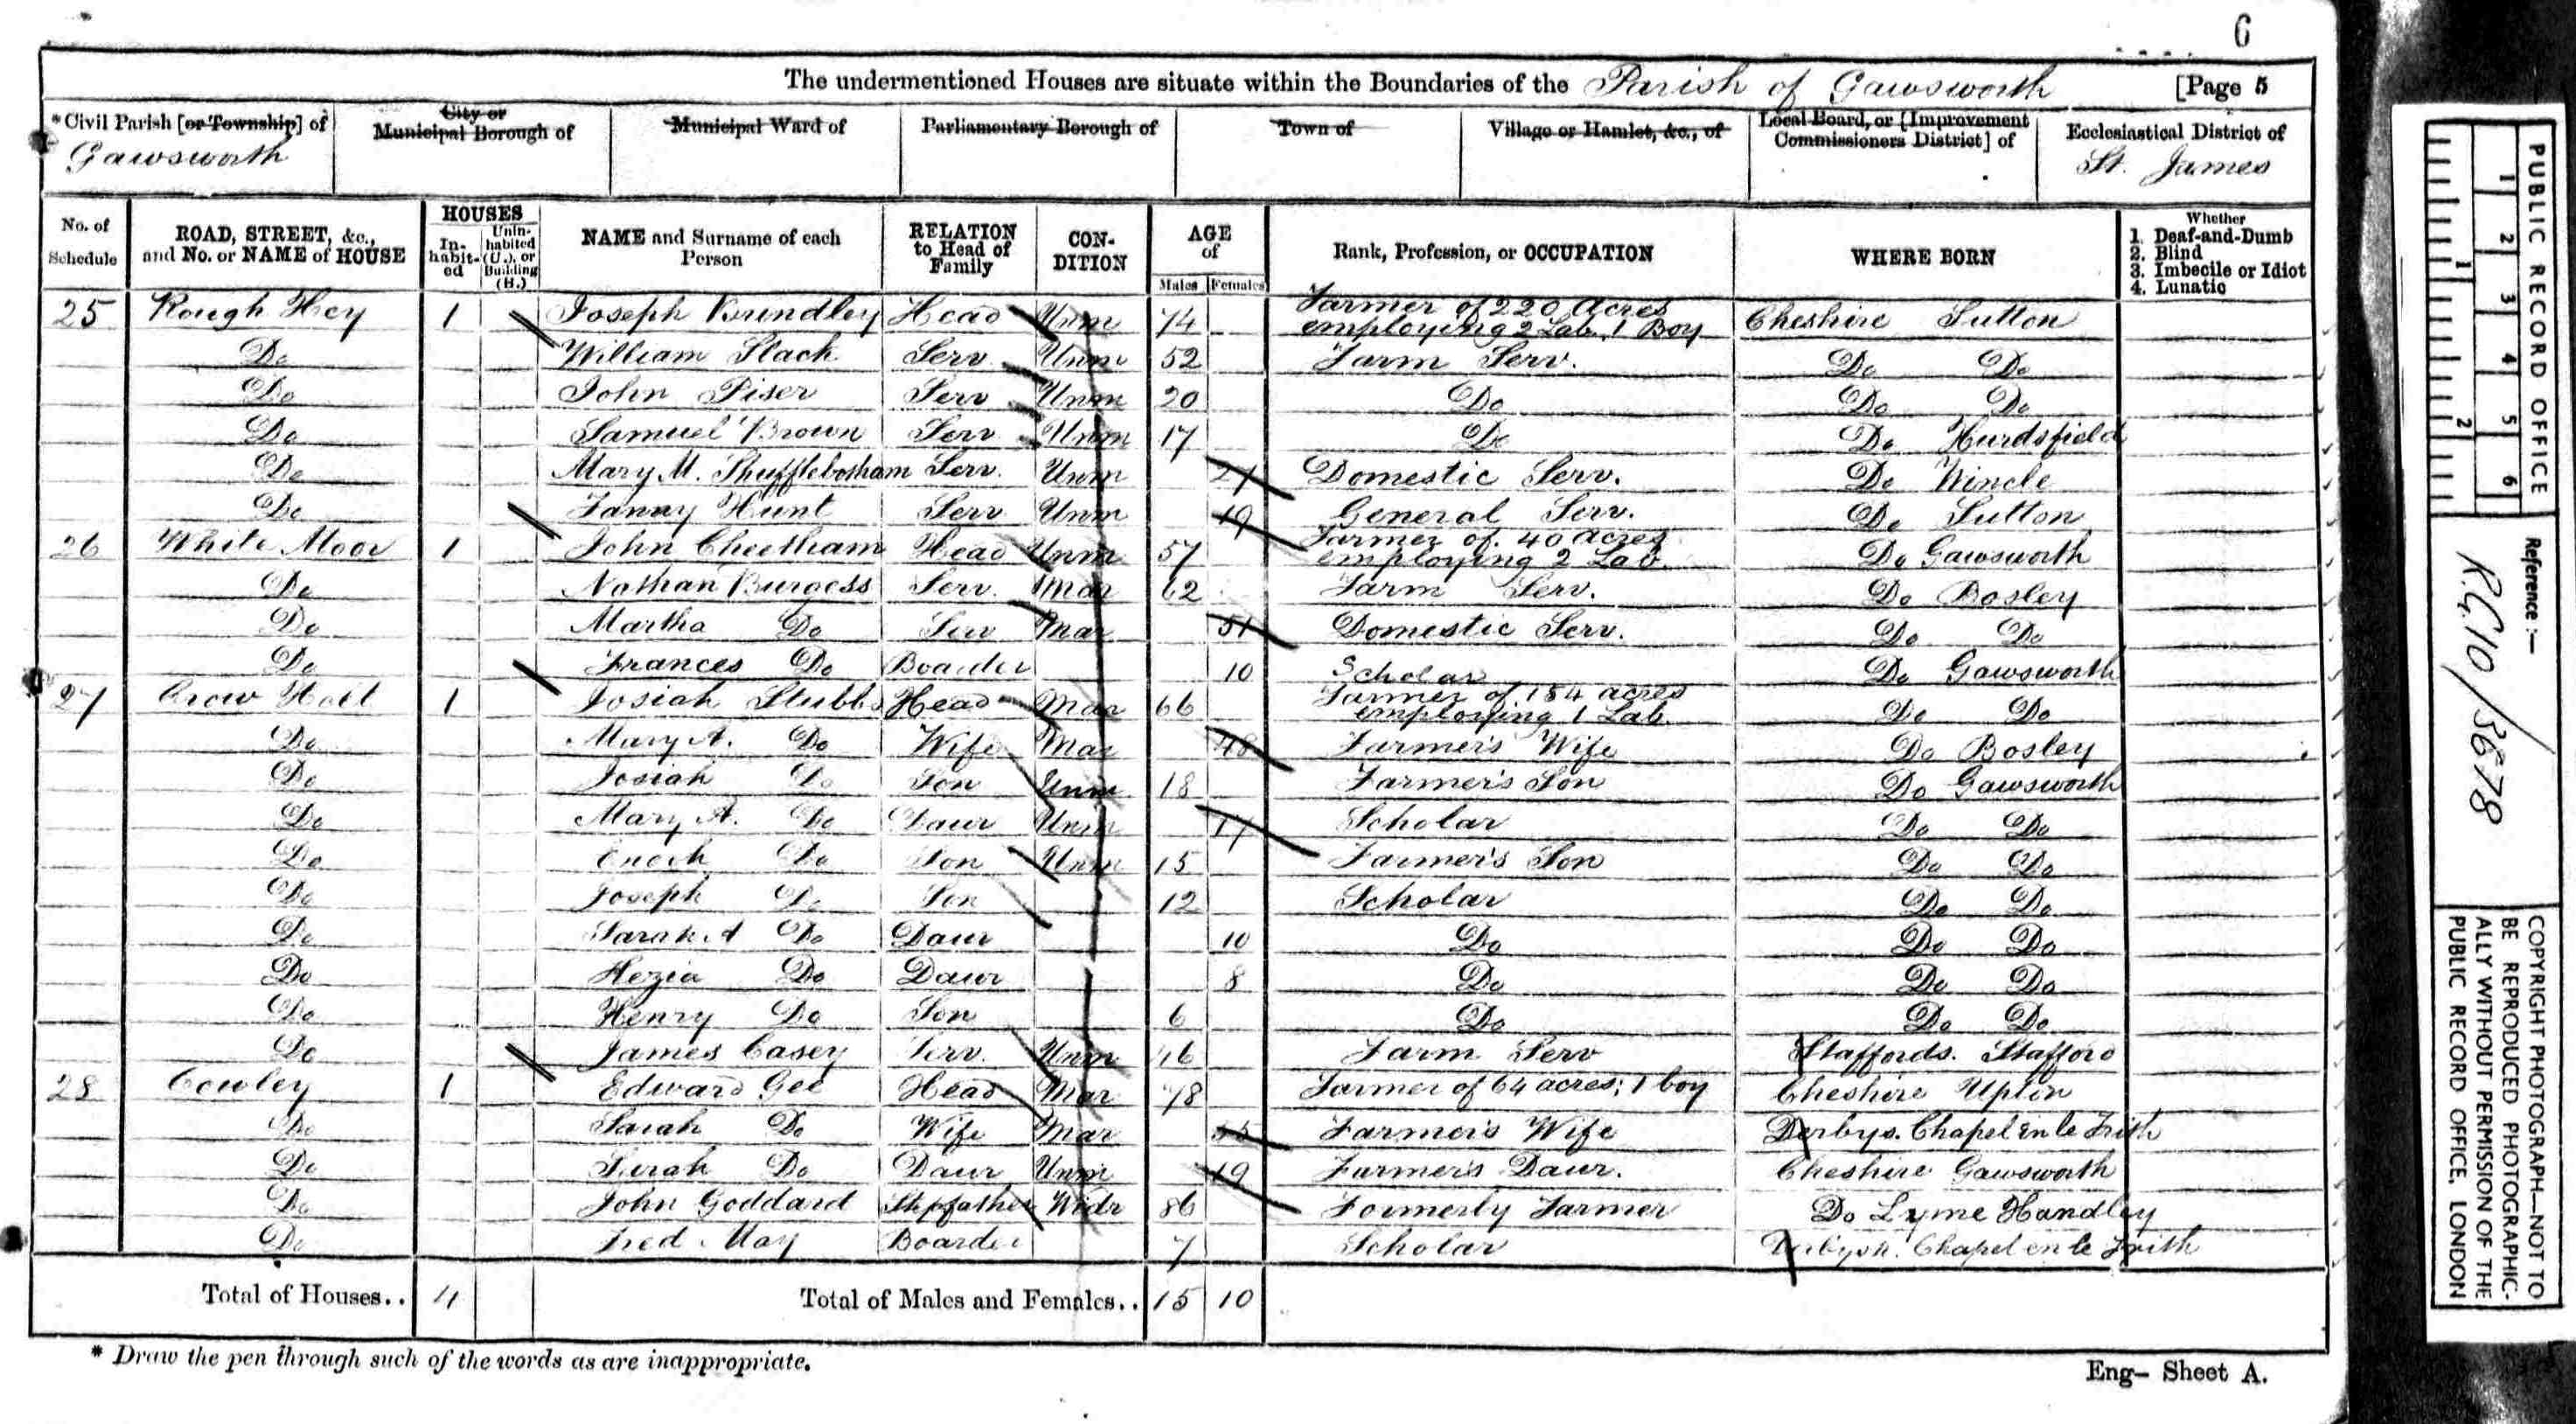 6
The undermentioned Houses are situate within the Boundaries of the Parish of Gawsworth [Page 5
*Civil Parish [or Township] of Gawsworth
City or Municipal Borough of
Municipal Ward of
Parliamentary Borough of
Town of
Village or Hamlet, &c., of
Local Board, or [Improvement Commissioners District] of
Ecclesiastical District of St. James
No. of Schedule
ROAD, STREET, &c., and No. or NAME of HOUSE
HOUSES
In-habit-ed
Unin-habited (U.), or Building (B.)
NAME and Surname of each Person
RELATION to Head of Family
CON-DITION
AGE of
Males Females
Rank, Profession, or OCCUPATION
WHERE BORN
Whether
1. Deaf-and-Dumb
2. Blind
3. Imbecile or Idiot
4. Lunatic
25 Rough Hey 1 Joseph Brindley Head Unm 74 Farmer of 220 Acres employing 2 Lab. 1 Boy Cheshire Sutton
Do William Slack Serv. Unm 52 Farm Serv. Do Do
Do John Piser Serv Unm 20 Do Do Do
Do Samuel Brown Serv Unm 17 Do Do Hurdsfield
Do Mary M. Shufflebotham Serv. Unm 21 Domestic Serv. Do Wincle
Do Fanny Hunt Serv Unm 19 General Serv. Do Sutton
26 White Moor 1 John Cheetham Head Unm 57 Farmer of 40 acres employing 2 Lab. Do Gawsworth
Do Nathan Burgess Serv. Mar 62 Farm Serv. Do Bosley
Do Martha Do Serv Mar 51 Domestic Serv. Do Do
Do Frances Do Boarder 10 Scholar Do Gawsworth
27 Crow Holt 1 Josiah Stubbs Head Mar 66 Farmer of 184 acres employing 1 Lab. Do Do
Do Mary A. Do Wife Mar 48 Farmer's Wife Do Bosley
Do Josiah Do Son Unm 18 Farmer's Son Do Gawsworth
Do Mary A. Do Daur Unm 17 Scholar Do Do
Do Enoch Do Son Unm 15 Farmer's Son Do Do
Do Joseph Do Son 12 Scholar Do Do
Do Sarah A Do Daur 10 Do Do Do
Do Kezia Do Daur 8 Do Do Do
Do Henry Do Son 6 Do Do Do
Do James Casey Serv. Unm 46 Farm Serv Staffords. Stafford
28 Cowley 1 Edward Gee Head Mar 78 Farmer of 64 acres; 1 boy Cheshire Upton
Do Sarah Do Wife Mar 55 Farmer's Wife Derbys. Chapel en le Frith
Do Sarah Do Daur Unm 19 Farmer's Daur. Cheshire Gawsworth
Do John Goddard Stepfather Widr 86 Formerly Farmer Do Lyme Handley
Do Fred May Boarder 7 Scholar Derbysh. Chapel en le Frith
Total of Houses.. 4 Total of Males and Females.. 15 10
* Draw the pen through such of the words as are inappropriate.
Eng- Sheet A.
PUBLIC RECORD OFFICE
1 2 3 4 5 6
1 2
Reference :-
R.G.10/3678
COPYRIGHT PHOTOGRAPH-NOT TO
BE REPRODUCED PHOTOGRAPHIC-
ALLY WITHOUT PERMISSION OF THE
PUBLIC RECORD OFFICE, LONDON